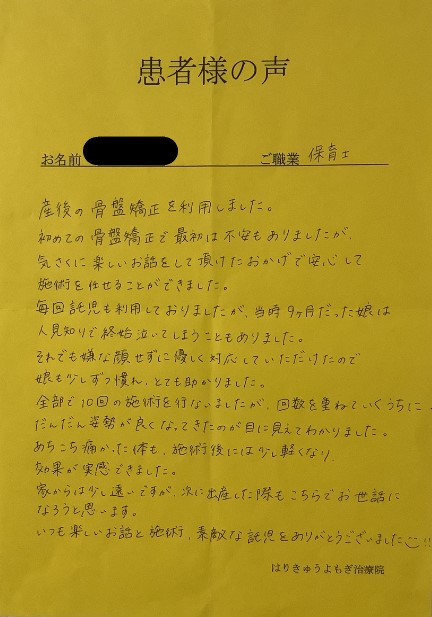 患者様の声
お名前 ご職業 保育士
産後の骨盤矯正を利用しました。
初めての骨盤矯正で最初は不安もありましたが、
気さくに楽しいお話をして頂けたおかげで安心して
施術を任せることができました。
毎回託児も利用しておりましたが、当時9ヶ月だった娘は
人見知りで終始泣いてしまうこともありました。
それでも嫌な顔せずに優しく対応していただけたので
娘も少しずつ慣れ、とても助かりました。
全部で10回の施術を行ないましたが、回数を重ねていくうちに、
だんだん姿勢が良くなってきたのが目に見えてわかりました。
あちこち痛かった体も、施術後には少し軽くなり、
効果が実感できました。
家からは少し遠いですが、次に出産した際もこちらでお世話に
なろうと思います。
いつも楽しいお話と施術、素敵な託児をありがとうございました!!
はりきゅうよもぎ治療院